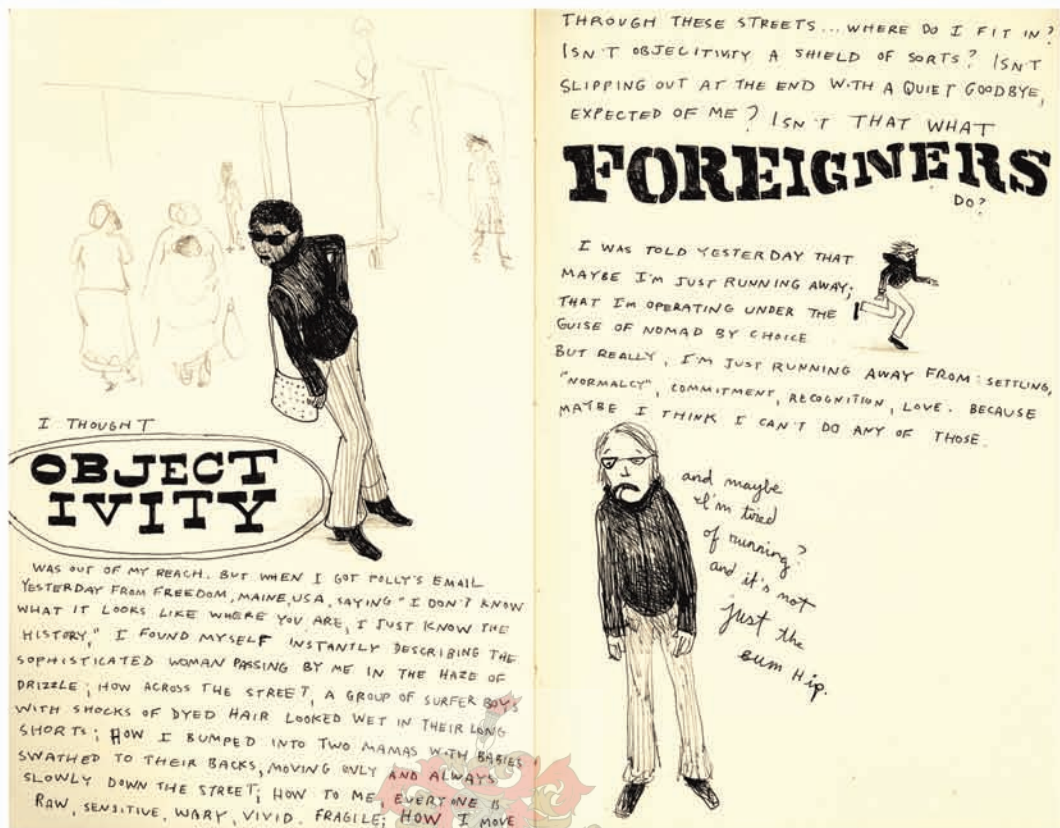 I THOUGHT
OBJECT
IVITY
WAS OUT OF MY REACH. BUT WHEN I GOT POLLY'S EMAIL
YESTERDAY FROM FREEDOM, MAINE, USA, SAYING "I DON'T KNOW
WHAT IT LOOKS LIKE WHERE YOU ARE, I JUST KNOW THE
HISTORY," I FOUND MYSELF INSTANTLY DESCRIBING THE
SOPHISTICATED WOMAN PASSING BY ME IN THE HAZE OF
DRIZZLE; HOW ACROSS THE STREET, A GROUP OF SURFER BOYS
WITH SHOCKS OF DYED HAIR LOOKED WET IN THEIR LONG
SHORTS; HOW I BUMPED INTO TWO MAMAS WITH BABIES
SWATHED TO THEIR BACKS, MOVING ONLY AND ALWAYS
SLOWLY DOWN THE STREET; HOW TO ME, EVERYONE IS
RAW, SENSITIVE, WARY, VIVID. FRAGILE; HOW I MOVE
THROUGH THESE STREETS... WHERE DO I FIT IN?
ISN'T OBJECITIVITY A SHIELD OF SORTS? ISN'T
SLIPPING OUT AT THE END WITH A QUIET GOODBYE,
EXPECTED OF ME? ISN'T THAT WHAT
FOREIGNERS
DO?
I WAS TOLD YESTERDAY THAT
MAYBE I'M JUST RUNNING AWAY;
THAT I'M OPERATING UNDER THE
GUISE OF NOMAD BY CHOICE
BUT REALLY, I'M JUST RUNNING AWAY FROM: SETTLING,
"NORMALCY", COMMITMENT, RECOGNITION, LOVE. BECAUSE
MAYBE I THINK I CAN'T DO ANY OF THOSE.
and maybe
I'm tired
of running?
and it's not
just the
bum hip.